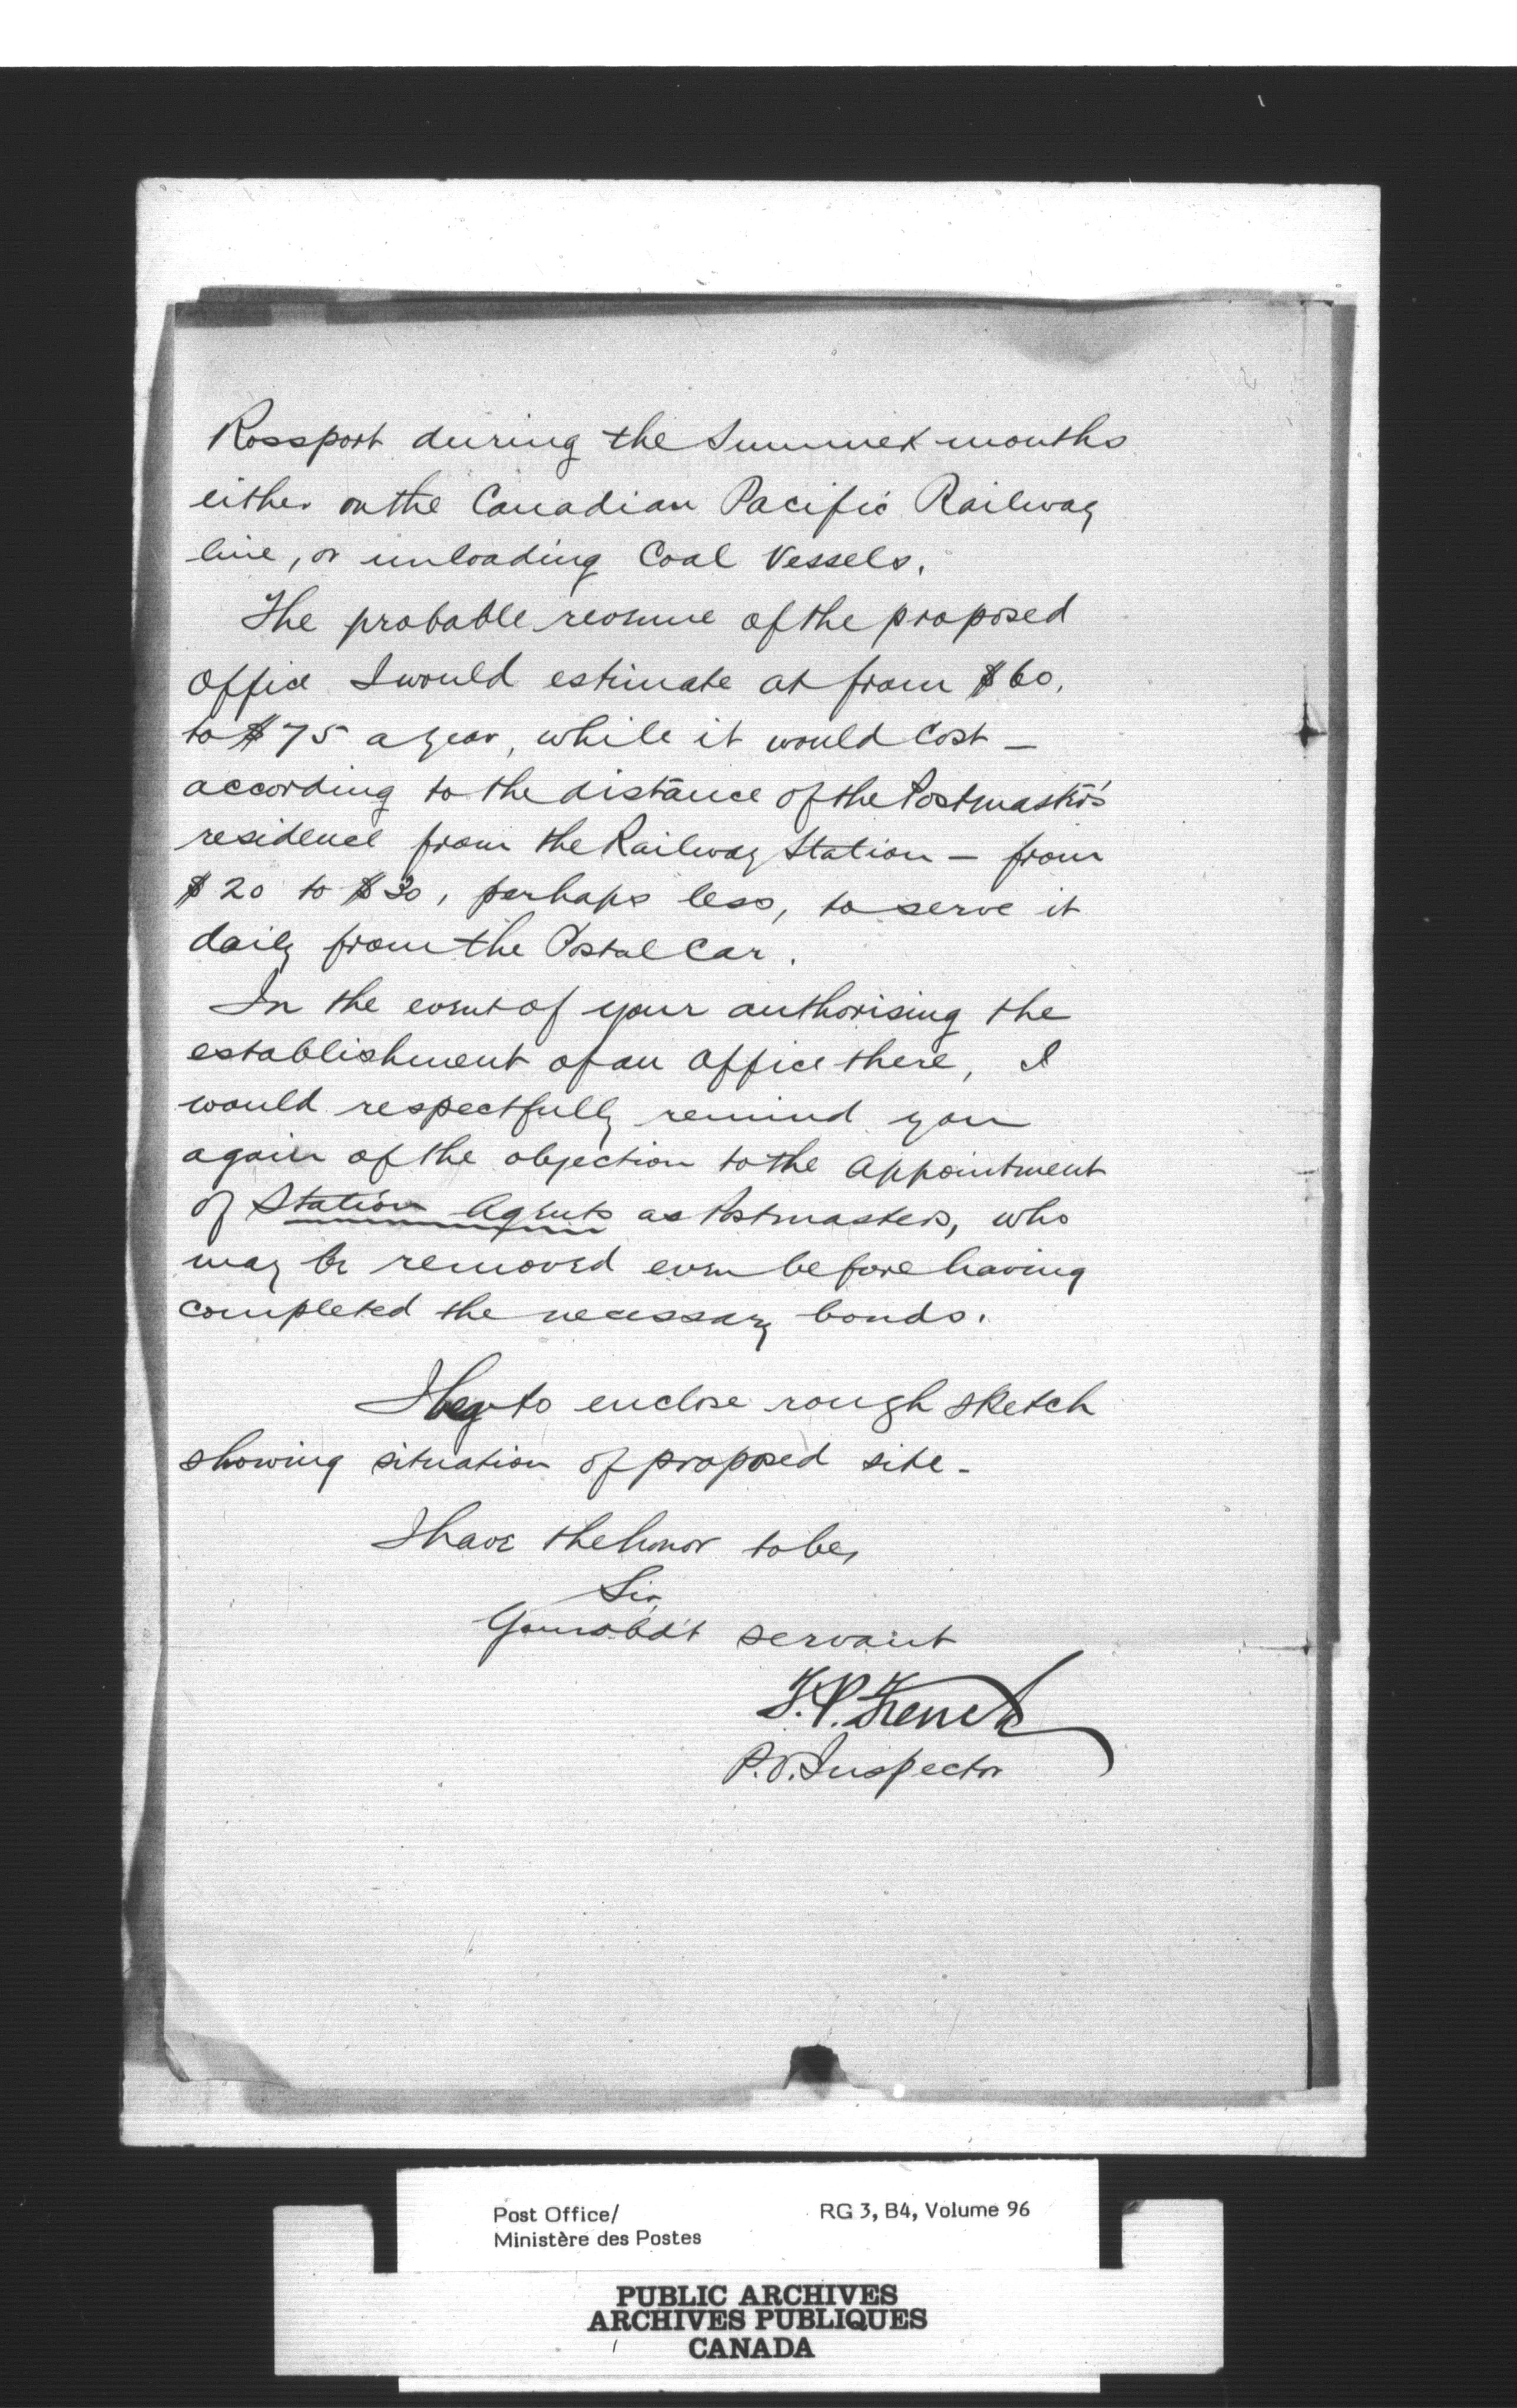 Rossport during the Summer months
either on the Canadian Pacific Railway
line, or unloading Coal Vessels.
The probable revenue of the proposed
office I would estimate at from $60.
to $75 a year, while it would cost —
according to the distance of the Postmaster's
residence from the Railway Station — from
$20 to $30, perhaps less, to serve it
daily from the Postal Car.
In the event of your authorising the
establishment of an office there, I
would respectfully remind you
again of the objection to the appointment
of Station Agents as Postmasters, who
may be removed even before having
completed the necessary bonds.
I beg to enclose rough sketch
showing situation of proposed site -
I have the honor to be,
Sir,
Your obdt servant
F.P. French
P.O. Inspector
Post Office/
Ministère des Postes
RG 3, B4, Volume 96
PUBLIC ARCHIVES
ARCHIVES PUBLIQUES
CANADA